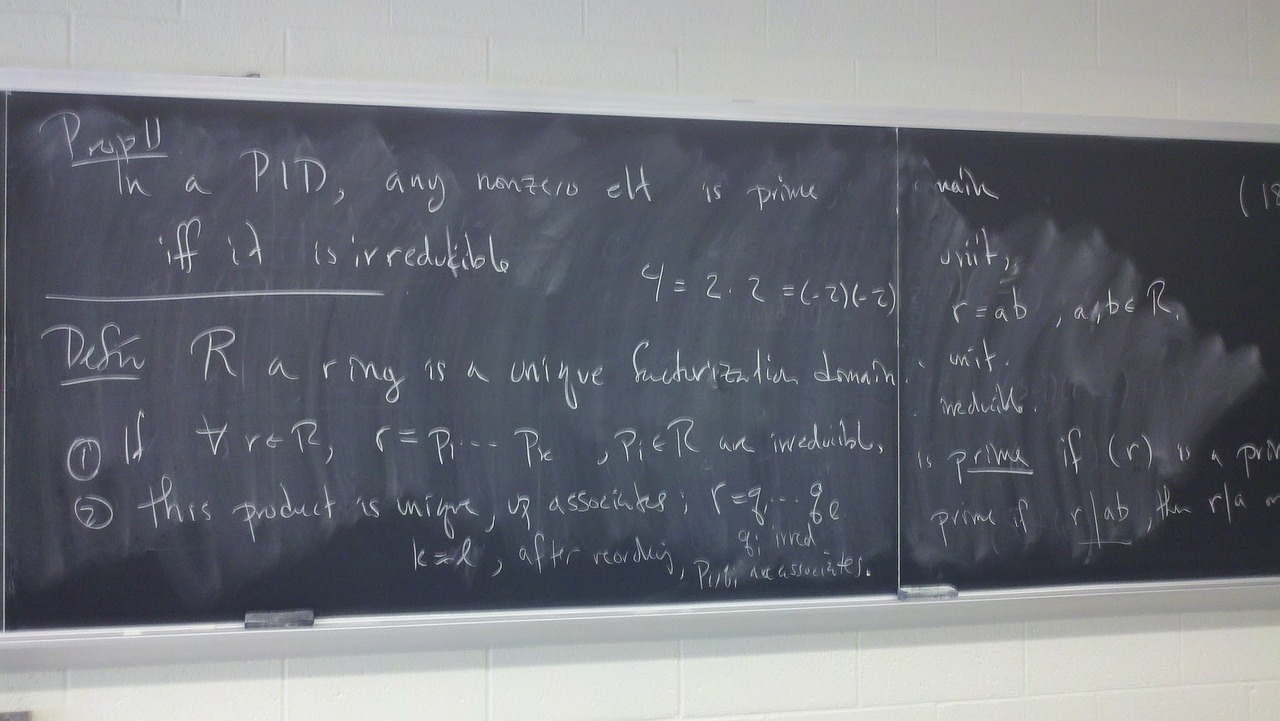 Prop 11
In a PID, any nonzero elt is prime
iff it is irreducible
4 = 2 · 2 = (-2)(-2)
Defn R a ring is a unique factorization domain
① If ∀ r ∈ R, r = p₁ ... pₖ , pᵢ ∈ R are irreducible,
② this product is unique, up associates; r = q₁ ... qₗ
qᵢ irred
k = l , after reordering, pᵢ, qᵢ are associates.
(18
unit,
r = ab , a, b ∈ R.
unit.
irreducible.
is prime if (r) is a
prime if r | ab , then r/a